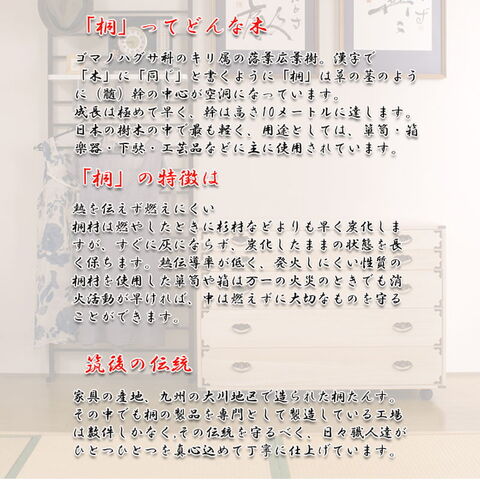 「桐」ってどんな木
ゴマノハグサ科のキリ属の落葉広葉樹。漢字で
「木」に「同じ」と書くように「桐」は草の茎のよう
に（髄）幹の中心が空洞になっています。
成長は極めて早く、幹は高さ10メートルに達します。
日本の樹木の中で最も軽く、用途としては、箪笥・箱
楽器・下駄・工芸品などに主に使用されています。
「桐」の特徴は
熱を伝えず燃えにくい
桐材は燃やしたときに杉材などよりも早く炭化しま
すが、すぐに灰にならず、炭化したままの状態を長
く保ちます。熱伝導率が低く、発火しにくい性質の
桐材を使用した箪笥や箱は万一の火災のときでも消
火活動が早ければ、中は燃えずに大切なものを守る
ことができます。
筑後の伝統
家具の産地、九州の大川地区で造られた桐たんす。
その中でも桐の製品を専門として製造している工場
は数件しかなく,その伝統を守るべく、日々職人達が
ひとつひとつを真心込めて丁寧に仕上げています。